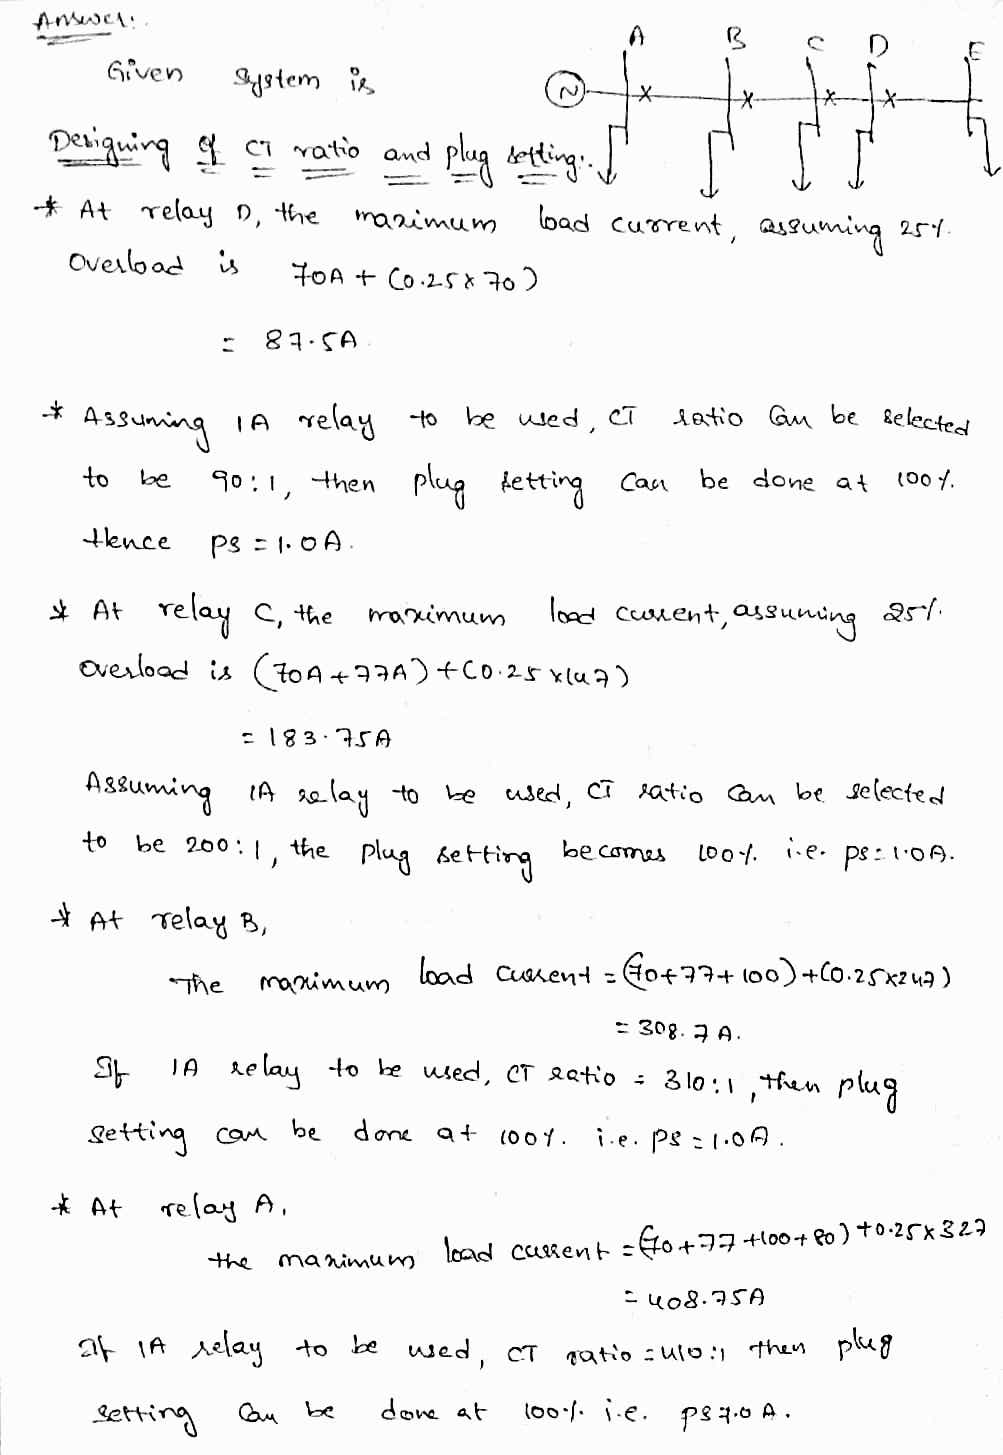 Answer:.
A B C D E
Given system is
N
Designing of CT ratio and plug setting:.
* At relay D, the maximum load current, assuming 25%.
Overload is 70A + (0.25 x 70)
= 87.5A.
* Assuming 1A relay to be used, CT ratio Can be selected
to be 90:1, then plug setting can be done at 100%.
Hence ps = 1.0A.
* At relay C, the maximum load current, assuming 25%.
overload is (70A + 77A) + (0.25 x 147)
= 183.75A
Assuming 1A relay to be used, CT ratio Can be selected
to be 200:1, the plug setting becomes 100%. i.e. ps = 1.0A.
* At relay B,
The maximum load current = (70+77+100) + (0.25x247)
= 308.7A.
If 1A relay to be used, CT ratio = 310:1, then plug
setting can be done at 100%. i.e. ps = 1.0A.
* At relay A,
the maximum load current = (70+77+100+80) + 0.25 x 327
= 408.75A
If 1A relay to be used, CT ratio = 410:1 then plug
setting Can be done at 100%. i.e. ps=1.0 A.